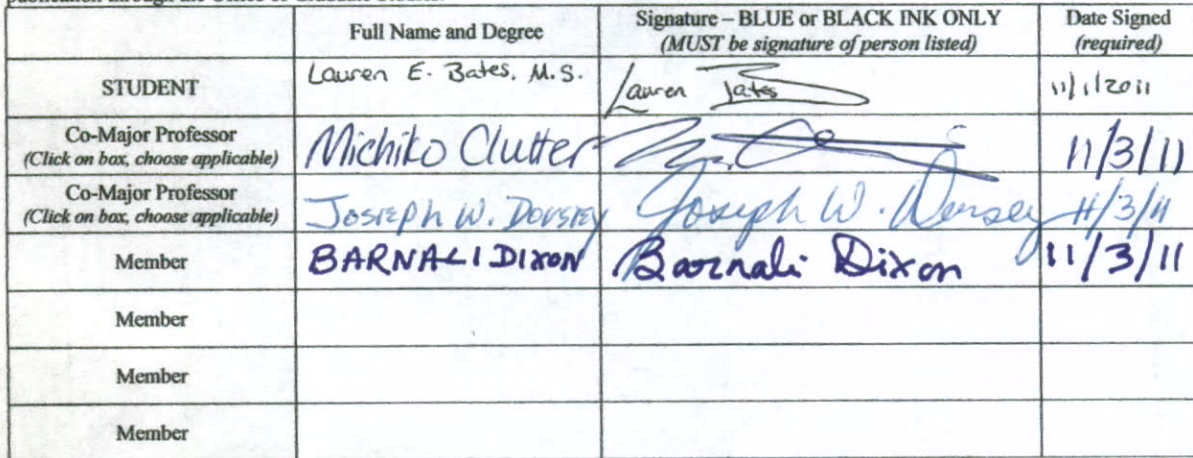 Full Name and Degree
Signature – BLUE or BLACK INK ONLY
(MUST be signature of person listed)
Date Signed
(required)
STUDENT
Lauren E. Bates, M.S.
Lauren Bates
11/1/2011
Co-Major Professor
(Click on box, choose applicable)
Michiko Clutter
11/3/11
Co-Major Professor
(Click on box, choose applicable)
Joseph W. Dorsey
Joseph W. Dorsey
11/3/11
Member
BARNALI DIXON
Barnali Dixon
11/3/11
Member
Member
Member